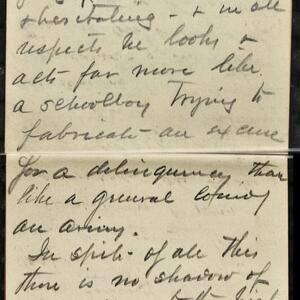 & hesitating - & in all
respects he looks &
acts far more like
a schoolboy trying to
fabricate an excuse
for a delinquency than
like a general losing
an army.
In spite of all this
there is no shadow of